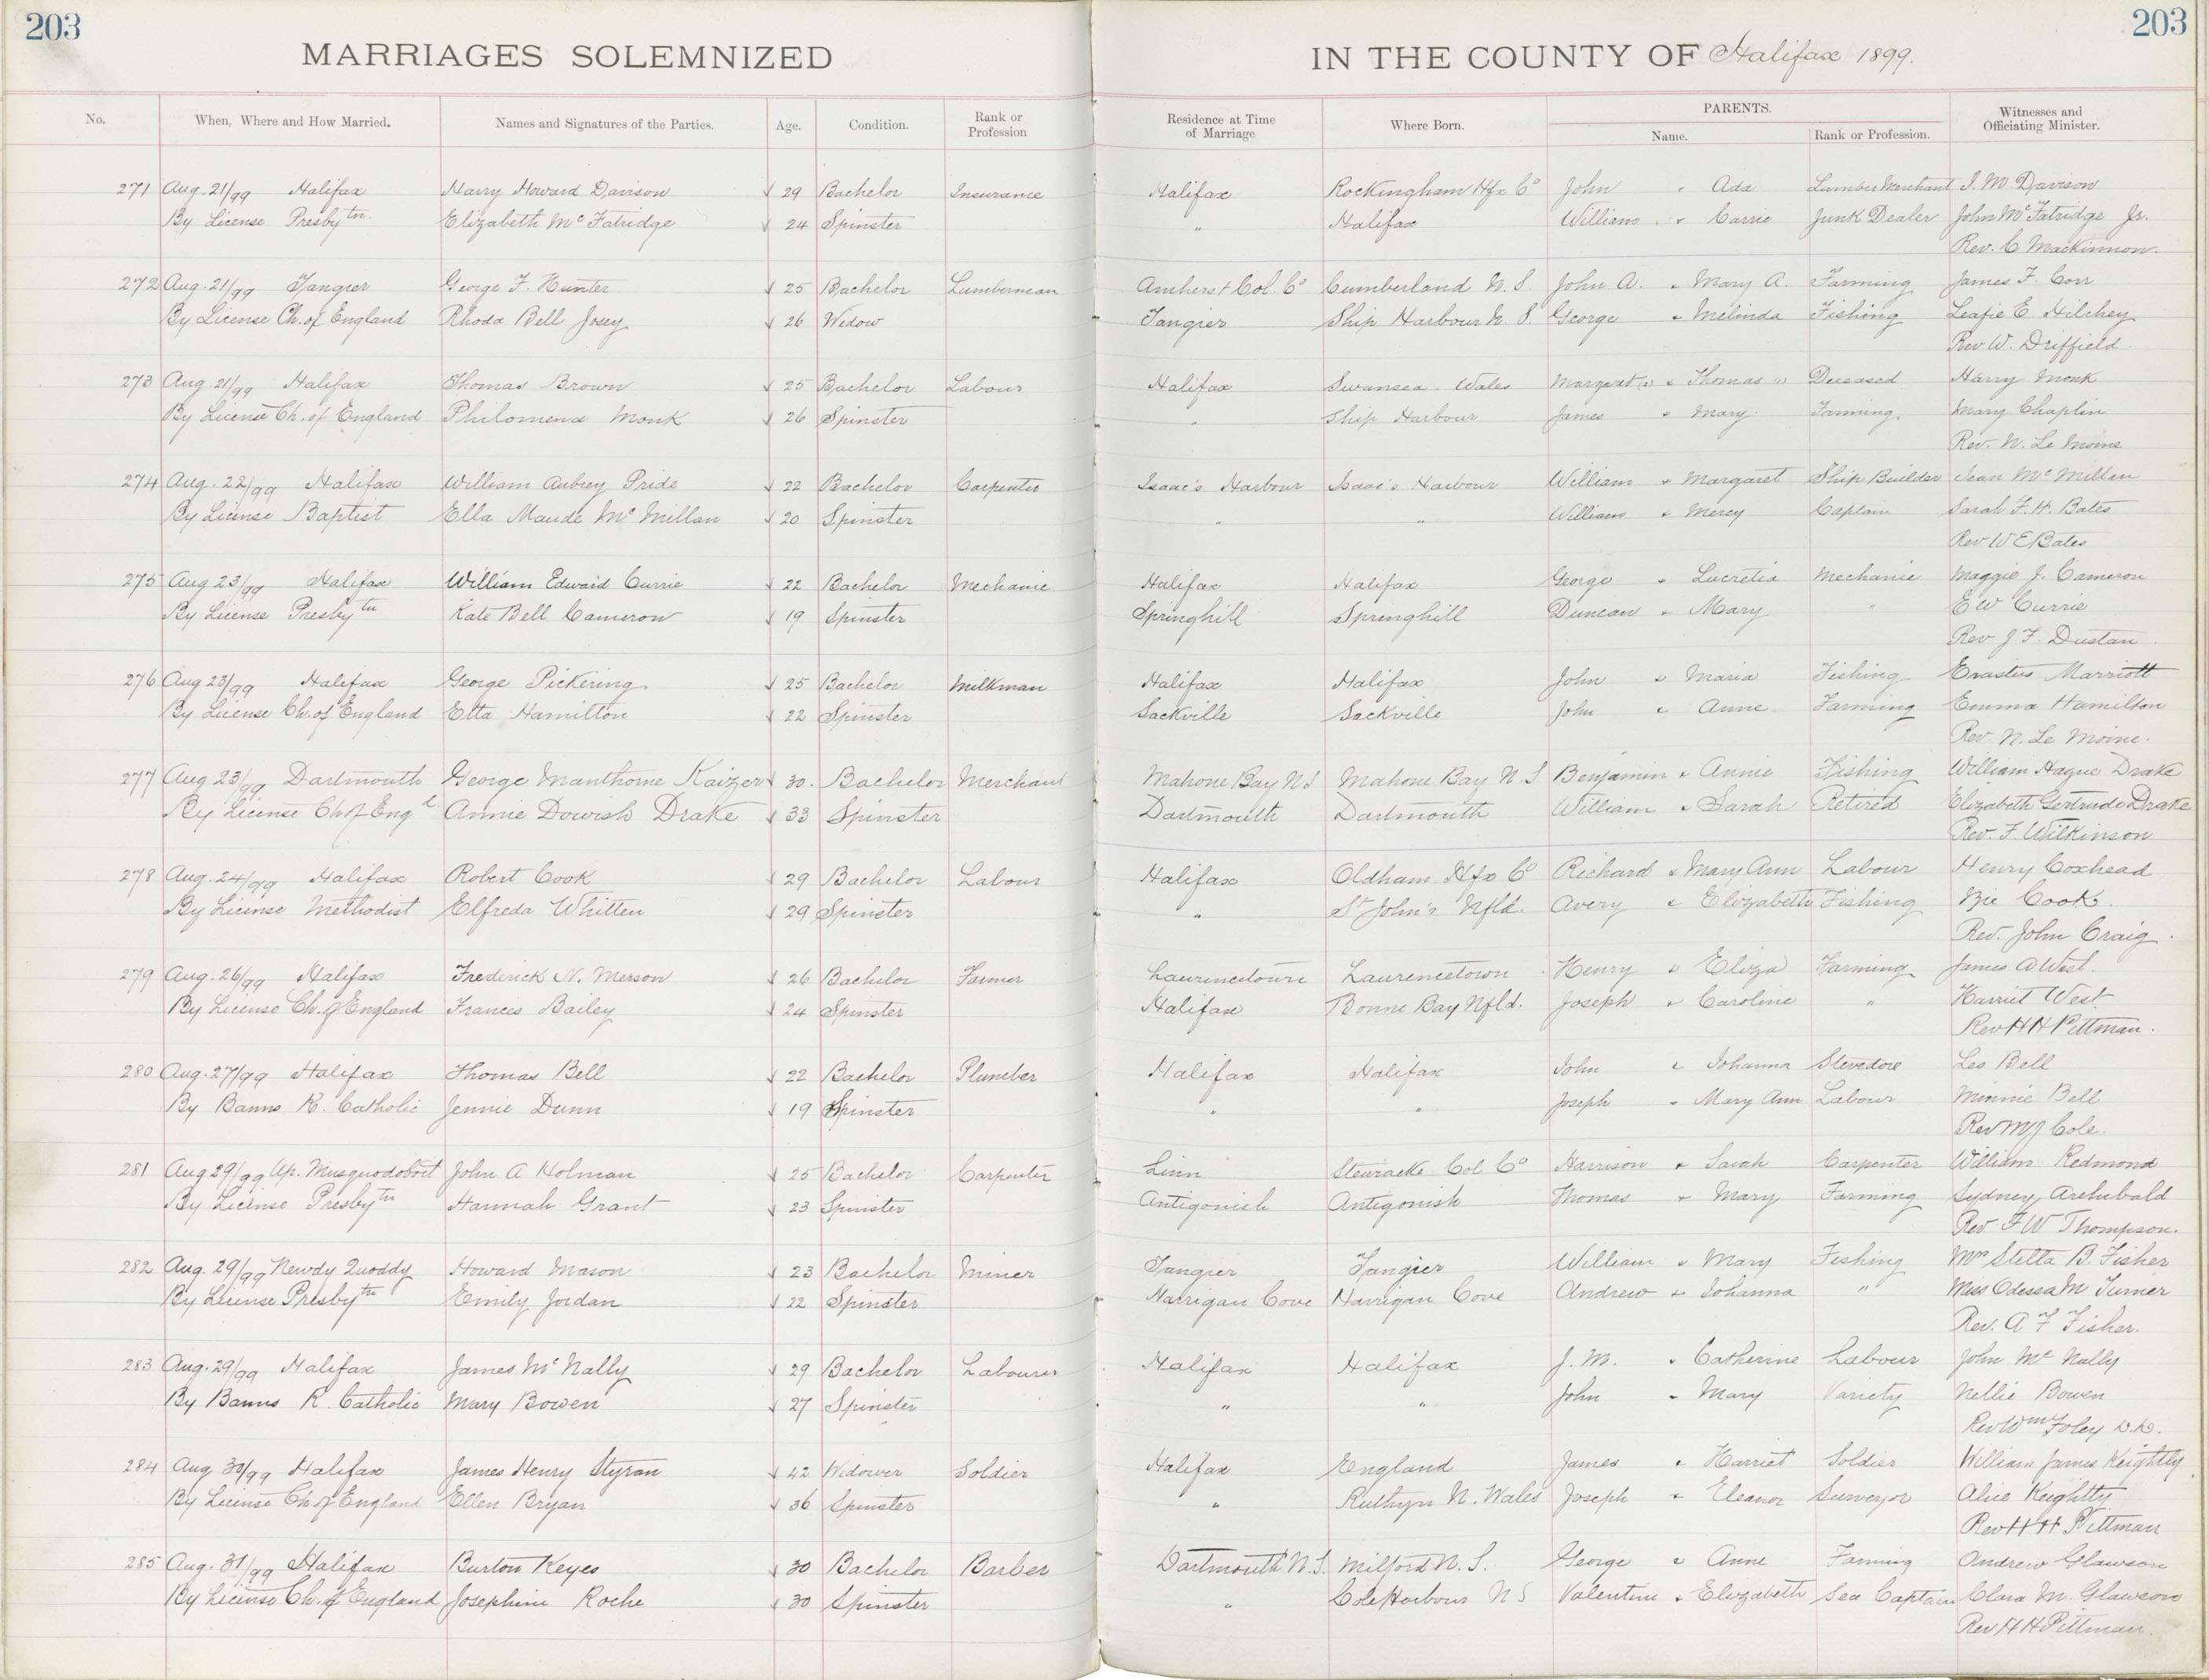 203
203
MARRIAGES SOLEMNIZED IN THE COUNTY OF Halifax 1899.
No. When, Where and How Married. Names and Signatures of the Parties. Age. Condition. Rank or Profession Residence at Time of Marriage Where Born. PARENTS. Name. Rank or Profession. Witnesses and Officiating Minister.
271 Aug. 21/99 Halifax Harry Howard Davison √ 29 Bachelor Insurance Halifax Rockingham Hfx Co John " Ada Lumber Merchant I. M. Davison
By License Presbytn. Elizabeth Mc Fatridge √ 24 Spinster " Halifax William " Carrie Junk Dealer John McFatridge Jr.
Rev. C Mackinnon.
272 Aug. 21/99 Tangier George F. Hunter √ 25 Bachelor Lumberman Amherst Col. Co Cumberland N. S. John A. " Mary A. Farming James F. Corr
By License Ch. of England Rhoda Bell Josey √ 26 Widow Tangier Ship Harbour N S. George " Melinda Fishing Leafie E. Hilchey
Rev W. Driffield.
273 Aug. 21/99 Halifax Thomas Brown √ 25 Bachelor Labour Halifax Swansea Wales Margaret (D) " Thomas (D) Deceased Harry Monk
By License Ch. of England Philomena Monk √ 26 Spinster " Ship Harbour James " Mary Farming Mary Chaplin
Rev. N. Le Moine
274 Aug. 22/99 Halifax William Aubrey Pride √ 22 Bachelor Carpenter Isaac's Harbour Isaac's Harbour William " Margaret Ship Builder Jean McMillan
By License Baptist Ella Maude Mc Millan √ 20 Spinster " " William " Mercy Captain Sarah F. H. Bates
Rev W E Bates
275 Aug 23/99 Halifax William Edward Currie √ 22 Bachelor Mechanic Halifax Halifax George " Lucretia Mechanic Maggie J. Cameron
By License Presbytn Kate Bell Cameron √ 19 Spinster Springhill Springhill Duncan " Mary " E W Currie
Rev J. F. Dustan.
276 Aug 23/99 Halifax George Pickering √ 25 Bachelor Milkman Halifax Halifax John " Maria Fishing Erastus Marriott
By License Ch. of England Etta Hamilton √ 22 Spinster Sackville Sackville John " Anne Farming Emma Hamilton
Rev. N. Le Moine.
277 Aug 23/99 Dartmouth George Manthorne Kaizer √ 30. Bachelor Merchant Mahone Bay NS Mahone Bay N. S Benjamin " Annie Fishing William Hague Drake
By License Ch of Engd Annie Dowish Drake √ 33 Spinster Dartmouth Dartmouth William " Sarah Retired Elizabeth Gertrude Drake
Rev. F. Wilkinson
278 Aug. 24/99 Halifax Robert Cook √ 29 Bachelor Labour Halifax Oldham Hfx Co Richard " Mary Ann Labour Henry Coxhead
By License Methodist Elfreda Whitten √ 29 Spinster " St John's Nfld. Avery " Elizabeth Fishing Cook.
Rev. John Craig.
279 Aug. 26/99 Halifax Frederick N. Merson √ 26 Bachelor Farmer Laurencetown Laurencetown Henry " Eliza Farming James A West.
By License Ch. of England Frances Bailey √ 24 Spinster Halifax Bonne Bay Nfld. Joseph " Caroline " Harriet West
Rev H H Pittman.
280 Aug. 27/99 Halifax Thomas Bell √ 22 Bachelor Plumber Halifax Halifax John " Johanna Stevedore Leo Bell
By Banns R. Catholic Jennie Dunn √ 19 Spinster " " Joseph " Mary Ann Labour Minnie Bell
Rev Cole.
281 Aug 29/99 Up. Musquodoboit John A Holman √ 25 Bachelor Carpenter Linn Stewiacke Col Co Harrison " Sarah Carpenter William Redmond
By License Presbytn Hannah Grant √ 23 Spinster Antigonish Antigonish Thomas " Mary Farming Sydney Archibald
Rev F W Thompson.
282 Aug. 29/99 Newdy Quoddy Howard Mason √ 23 Bachelor Miner Tangier Tangier William " Mary Fishing Mrs Stella B. Fisher
By License Presbytn Emily Jordan √ 22 Spinster Harrigan Cove Harrigan Cove Andrew " Johanna " Miss Odessa M Turner
Rev. A F Fisher.
283 Aug. 29/99 Halifax James Mc Nally √ 29 Bachelor Labourer Halifax Halifax J. M. " Catherine Labour John Mc Nally
By Banns R. Catholic Mary Bowen √ 27 Spinster " " John " Mary Variety Nellie Bowen
Rev Wm Foley D.D.
284 Aug 30/99 Halifax James Henry Styran √ 42 Widower Soldier Halifax England James " Harriet Soldier William James Keightly
By License Ch of England Ellen Bryan √ 36 Spinster " Ruthyn N. Wales Joseph " Eleanor Surveyor Alice Keightly
Rev H H Pittman
285 Aug. 31/99 Halifax Burton Keyes √ 30 Bachelor Barber Dartmouth N. S. Milford N. S. George " Anne Farming Andrew Glawson
By License Ch. of England Josephine Roche √ 30 Spinster " Cole Harbour N S Valentine " Elizabeth Sea Captain Clara M. Glawson
Rev H H Pittman.